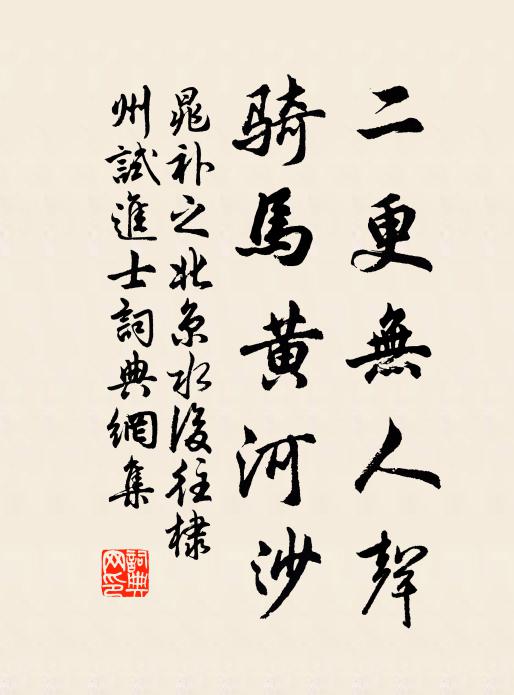 二更無人聲
騎馬黃河沙
晁補之北京水後往棣
州試進士詞典網集
詞典網印